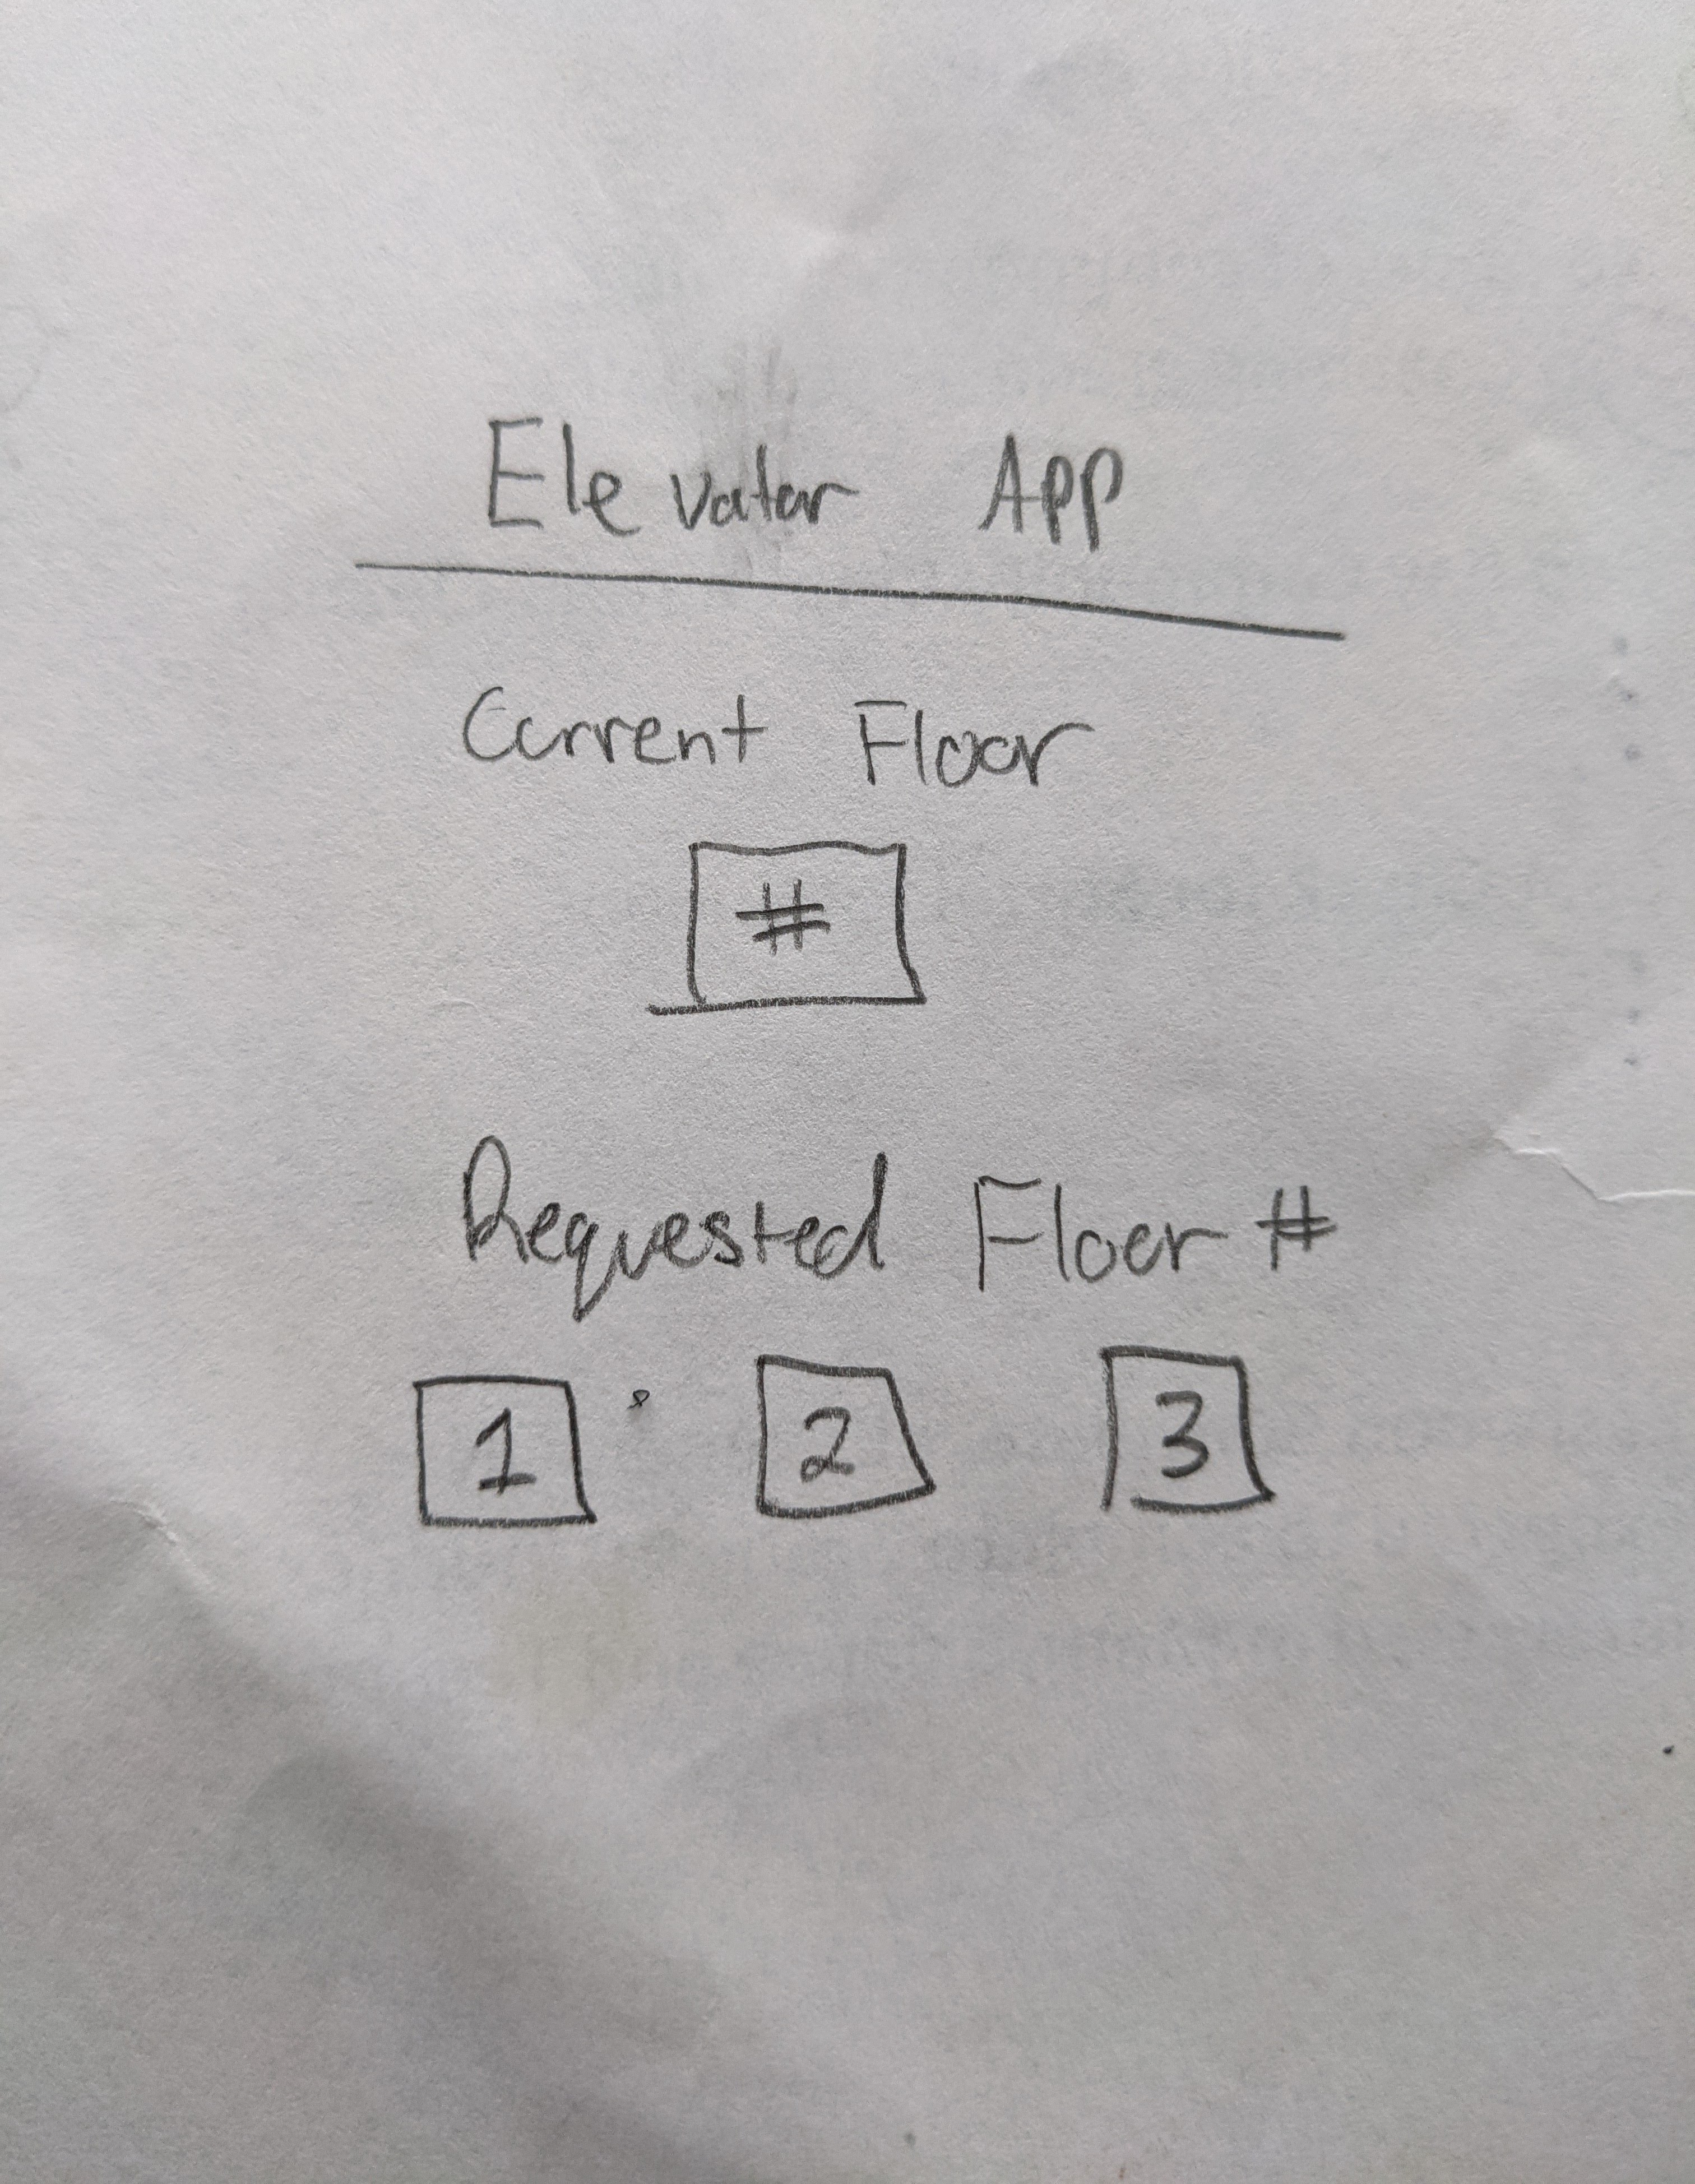 Elevator App
Current Floor
#
Requested Floor #
1 2 3